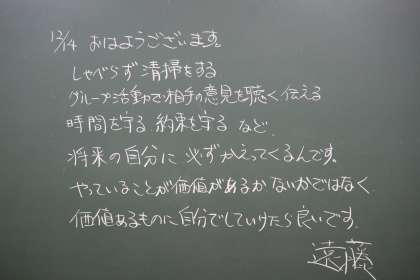 12/14 おはようございます。
しゃべらず清掃をする
グループ活動で相手の意見を聴く伝える
時間を守る 約束を守る など、
将来の自分に 必ずかえってくるんです。
やっていることが価値があるかないかではなく
価値あるものに自分でしていけたら良いです。
遠藤